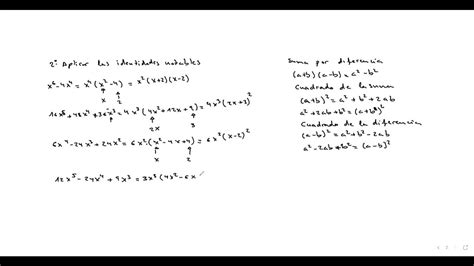 2º Aplicar las identidades notables
x⁶-4x⁴ = x⁴(x²-4) = x²(x+2)(x-2)
x 2
12x⁵+48x⁴+36x³ = 4x³(4x²+12x+9) = 4x³(2x+3)²
2x 3
6x⁴-24x³+24x² = 6x²(x²-4x+4) = 6x²(x-2)²
x 2
12x⁵-24x⁴+9x³ = 3x³(4x²-6x
Suma por diferencia
(a+b)(a-b) = a²-b²
Cuadrado de la suma
(a+b)² = a²+b²+2ab
a²+2ab+b² = (a+b)²
Cuadrado de la diferencia
(a-b)² = a²+b²-2ab
a²-2ab+b² = (a-b)²